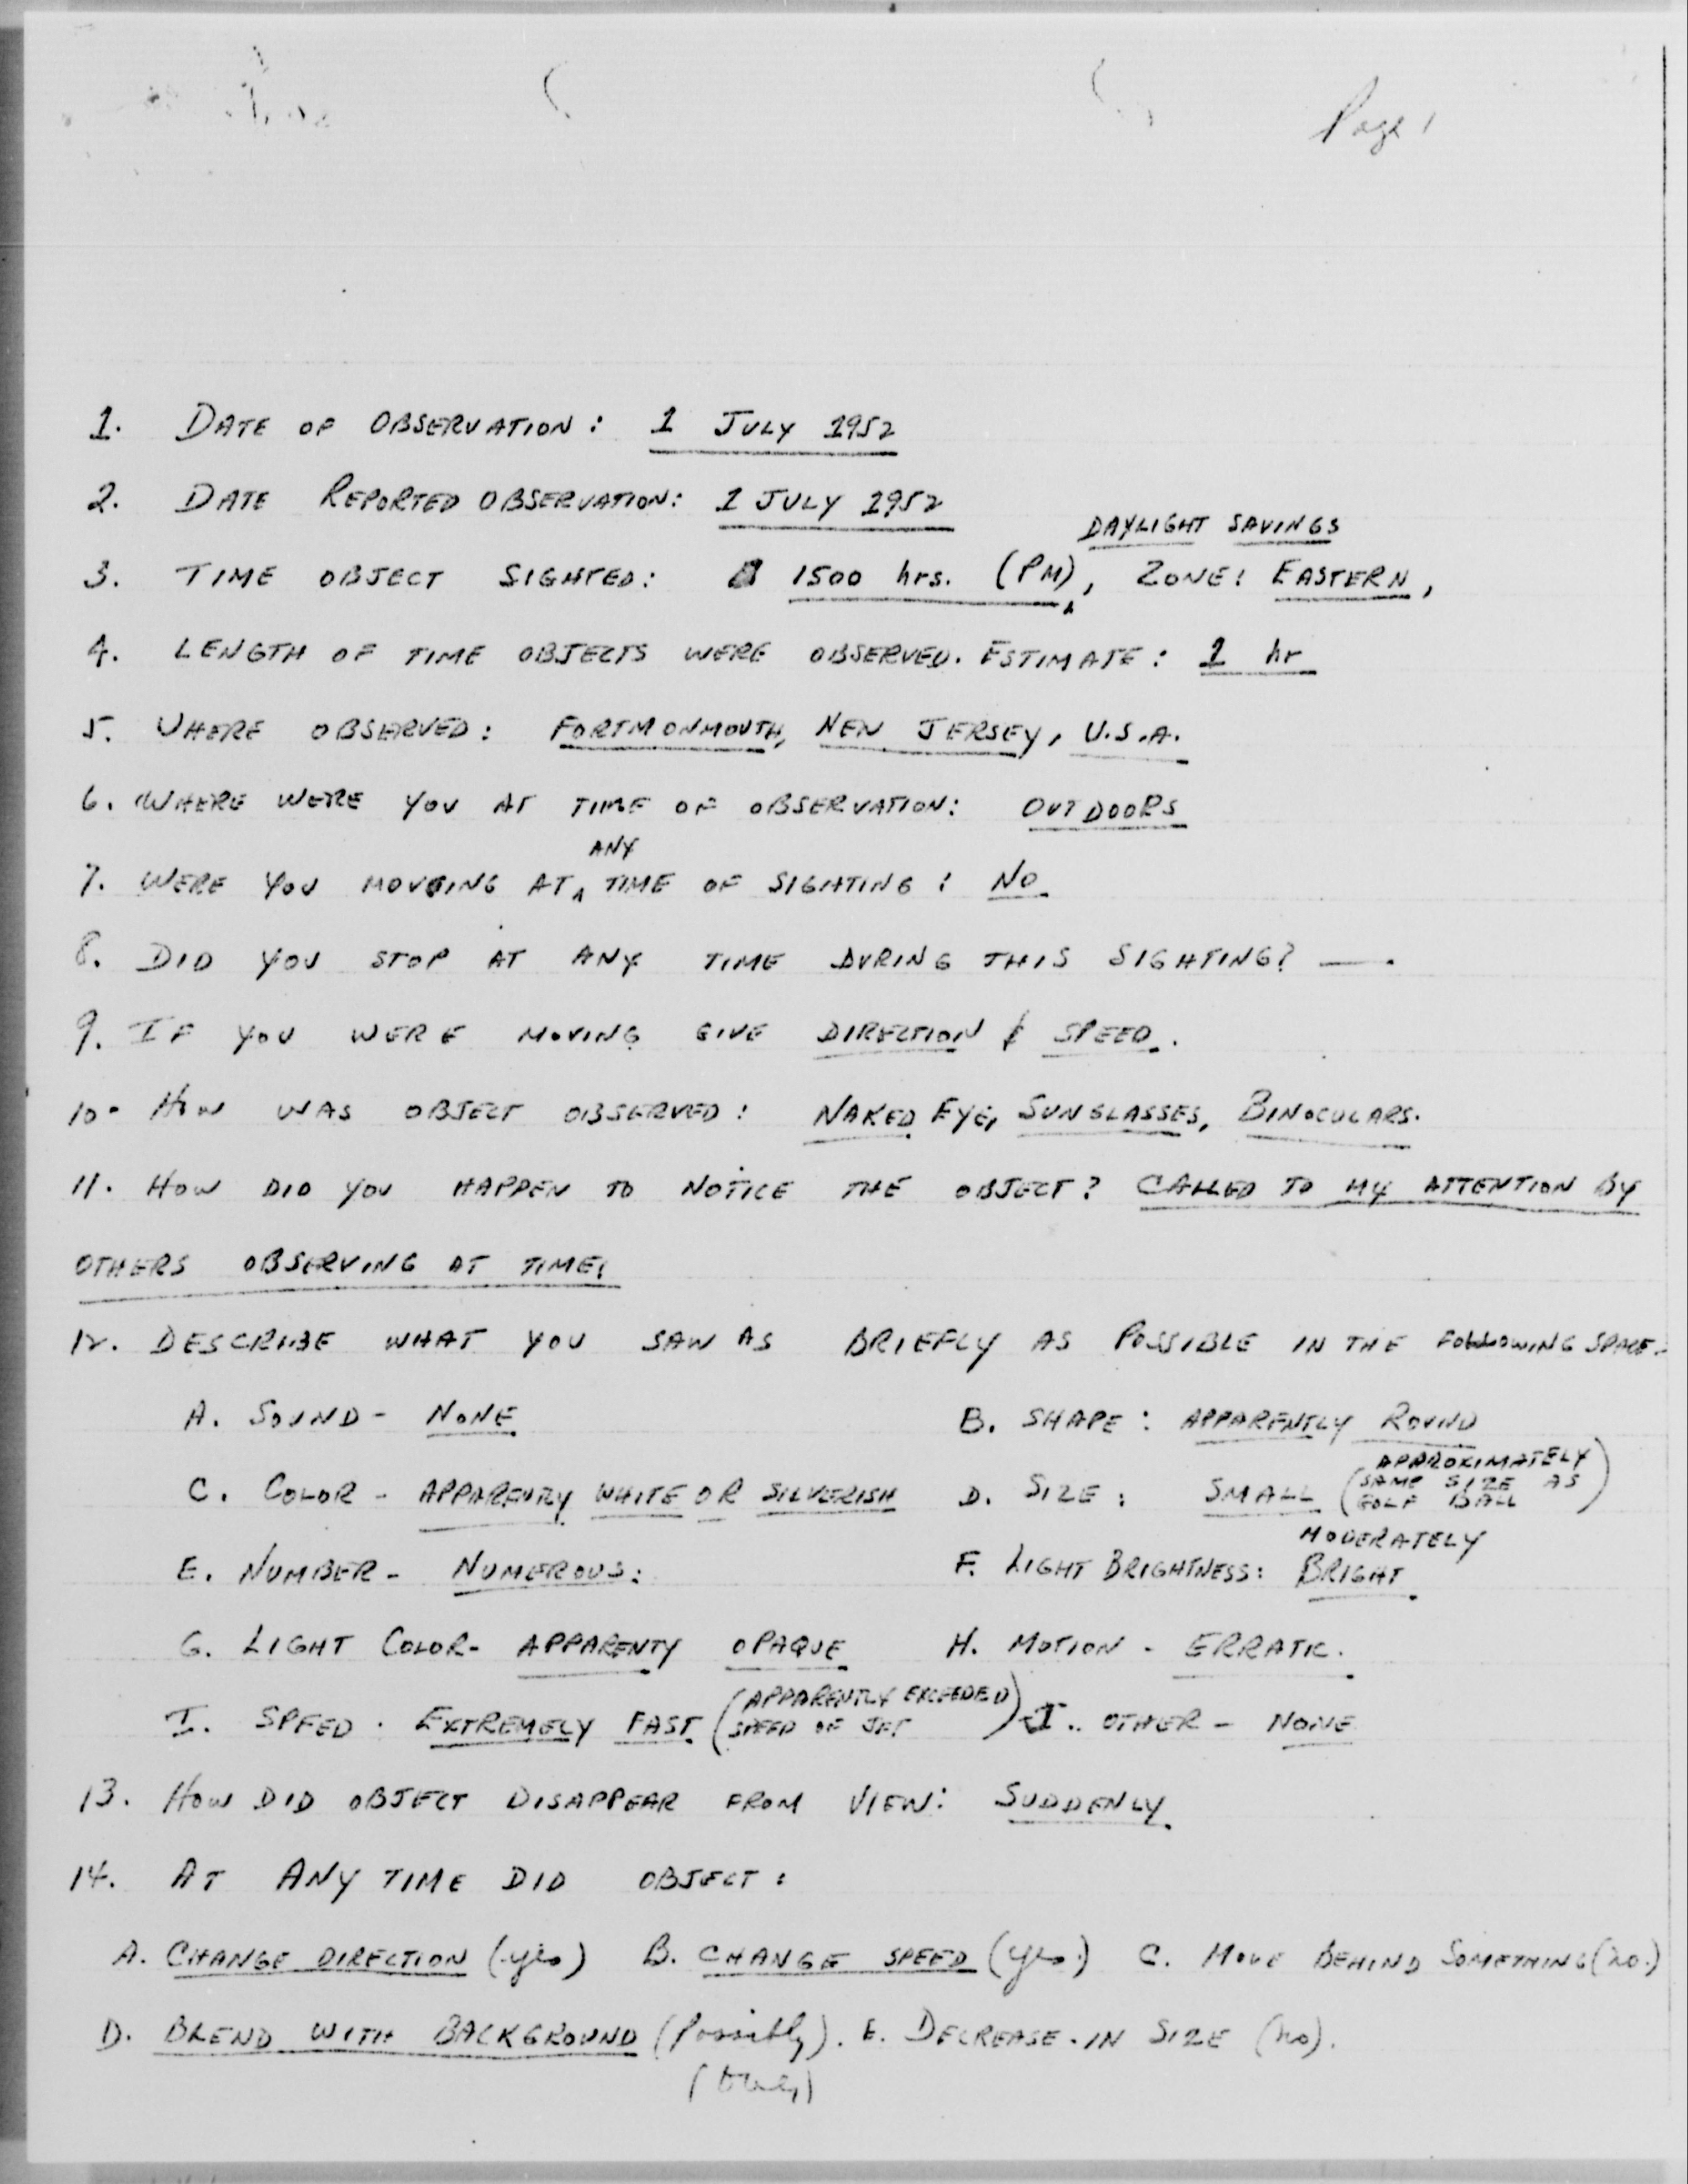 Page 1
1. DATE OF OBSERVATION: 1 JULY 1952
2. DATE REPORTED OBSERVATION: 1 JULY 1952
DAYLIGHT SAVINGS
3. TIME OBJECT SIGHTED: 1500 hrs. (PM), ZONE: EASTERN,
4. LENGTH OF TIME OBJECTS WERE OBSERVED. ESTIMATE: 1 hr
5. WHERE OBSERVED: FORTMONMOUTH, NEW JERSEY, U.S.A.
6. WHERE WERE YOU AT TIME OF OBSERVATION: OUTDOORS
ANY
7. WERE YOU MOVING AT TIME OF SIGHTING: NO.
8. DID YOU STOP AT ANY TIME DURING THIS SIGHTING? —.
9. IF YOU WERE MOVING GIVE DIRECTION & SPEED.
10. HOW WAS OBJECT OBSERVED: NAKED EYE, SUNGLASSES, BINOCULARS.
11. HOW DID YOU HAPPEN TO NOTICE THE OBJECT? CALLED TO MY ATTENTION BY
OTHERS OBSERVING AT TIME.
12. DESCRIBE WHAT YOU SAW AS BRIEFLY AS POSSIBLE IN THE FOLLOWING SPACE.
A. SOUND - NONE B. SHAPE: APPARENTLY ROUND
C. COLOR - APPARENTLY WHITE OR SILVERISH D. SIZE: SMALL (APPROXIMATELY SAME SIZE AS GOLF BALL)
MODERATELY
E. NUMBER - NUMEROUS: F. LIGHT BRIGHTNESS: BRIGHT.
G. LIGHT COLOR - APPARENTY OPAQUE H. MOTION - ERRATIC.
I. SPEED. EXTREMELY FAST (APPARENTLY EXCEEDED SPEED OF JET) J. OTHER - NONE
13. HOW DID OBJECT DISAPPEAR FROM VIEW: SUDDENLY.
14. AT ANY TIME DID OBJECT:
A. CHANGE DIRECTION (yes) B. CHANGE SPEED (yes.) C. MOVE BEHIND SOMETHING (no.)
D. BLEND WITH BACKGROUND (Possibly). E. DECREASE IN SIZE (no).